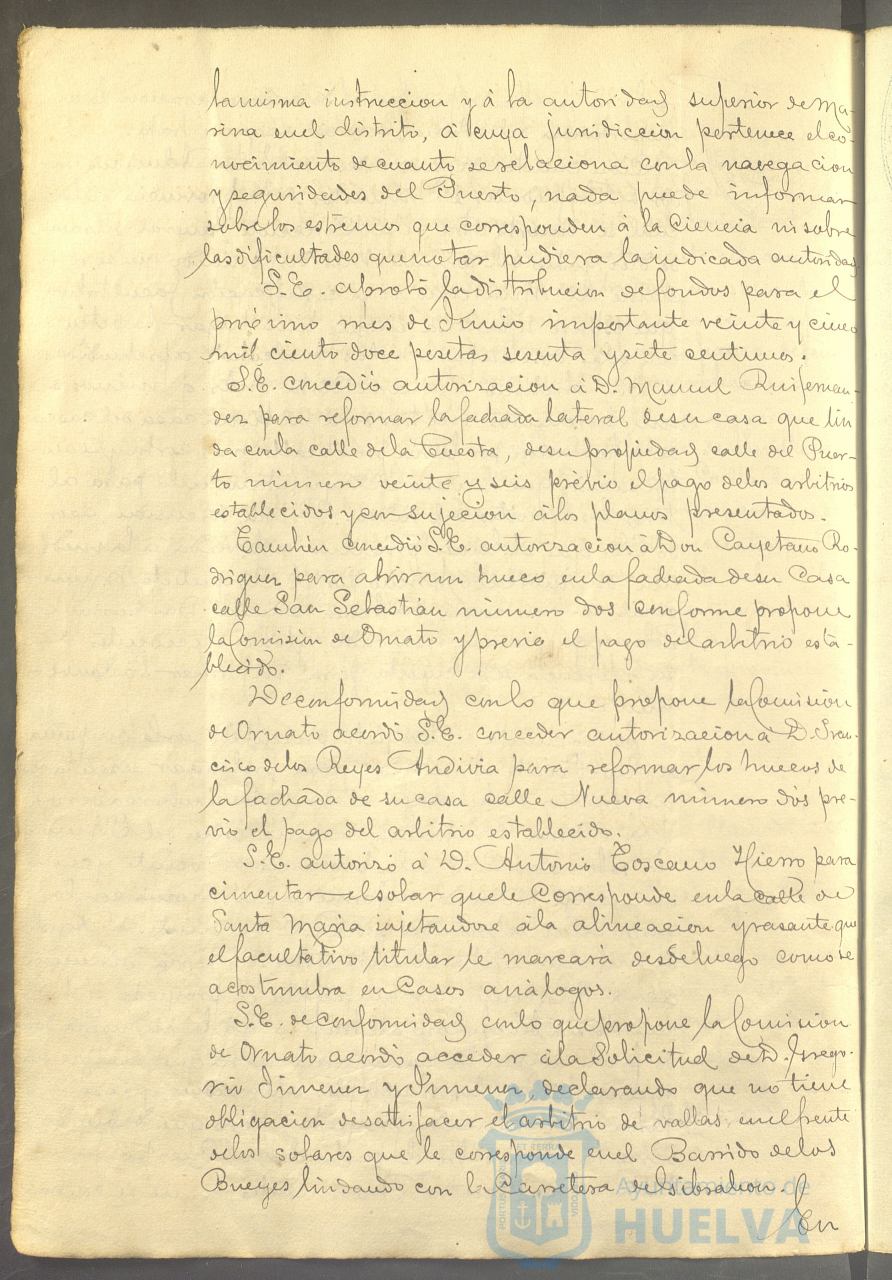 la misma instruccion y á la autoridad superior de Ma-
rina en el distrito, á cuya jurisdiccion pertenece el co-
nocimiento de cuanto se relaciona con la navegacion
y seguridades del Puerto, nada puede informar
sobre los estremos que corresponden á la Ciencia ni sobre
las dificultades que notar pudiera la indicada autoridad
S.E. aprobó la distribucion de fondos para el
próximo mes de Junio importante veinte y cinco
mil ciento doce pesetas sesenta y siete centimos.
S.E. concedió autorizacion á D. Manuel Ruifernan-
dez para reformar la fachada lateral de su casa que lin
da con la calle de la Cuesta, de su propiedad calle del Puer-
to número veinte y seis prévio el pago de los arbitrios
establecidos y con sujecion á los planos presentados.
Tambien concedió S.E. autorizacion á Don Cayetano Ro-
driguez para abrir un hueco en la fachada de su Casa
calle San Sebastián número dos conforme propone
la Comision de Ornato y previo el pago del arbitrio esta-
blecido.
De conformidad con lo que propone la Comision
de Ornato acordó S.E. conceder autorizacion á D. Fran-
cisco de los Reyes Andivia para reformar los huecos de
la fachada de su casa calle Nueva número dos pre-
vio el pago del arbitrio establecido.
S.E. autorizó á D. Antonio Toscano Hierro para
cimentar el solar que le Corresponde en la calle de
Santa Maria sujetandose á la alineacion y rasante que
el facultativo titular le marcará desde luego como se
acostumbra en Casos análogos.
S.E. de conformidad con lo que propone la Comision
de Ornato acordó acceder á la Solicitud de D. Grego-
rio Jimenez y Jimenez, declarando que no tiene
obligacion de satisfacer el arbitrio de vallas en el frente
de los solares que le corresponde en el Barrido de los
Bueyes lindando con la Carretera de Gibraleon.
En
Ayuntamiento de
HUELVA